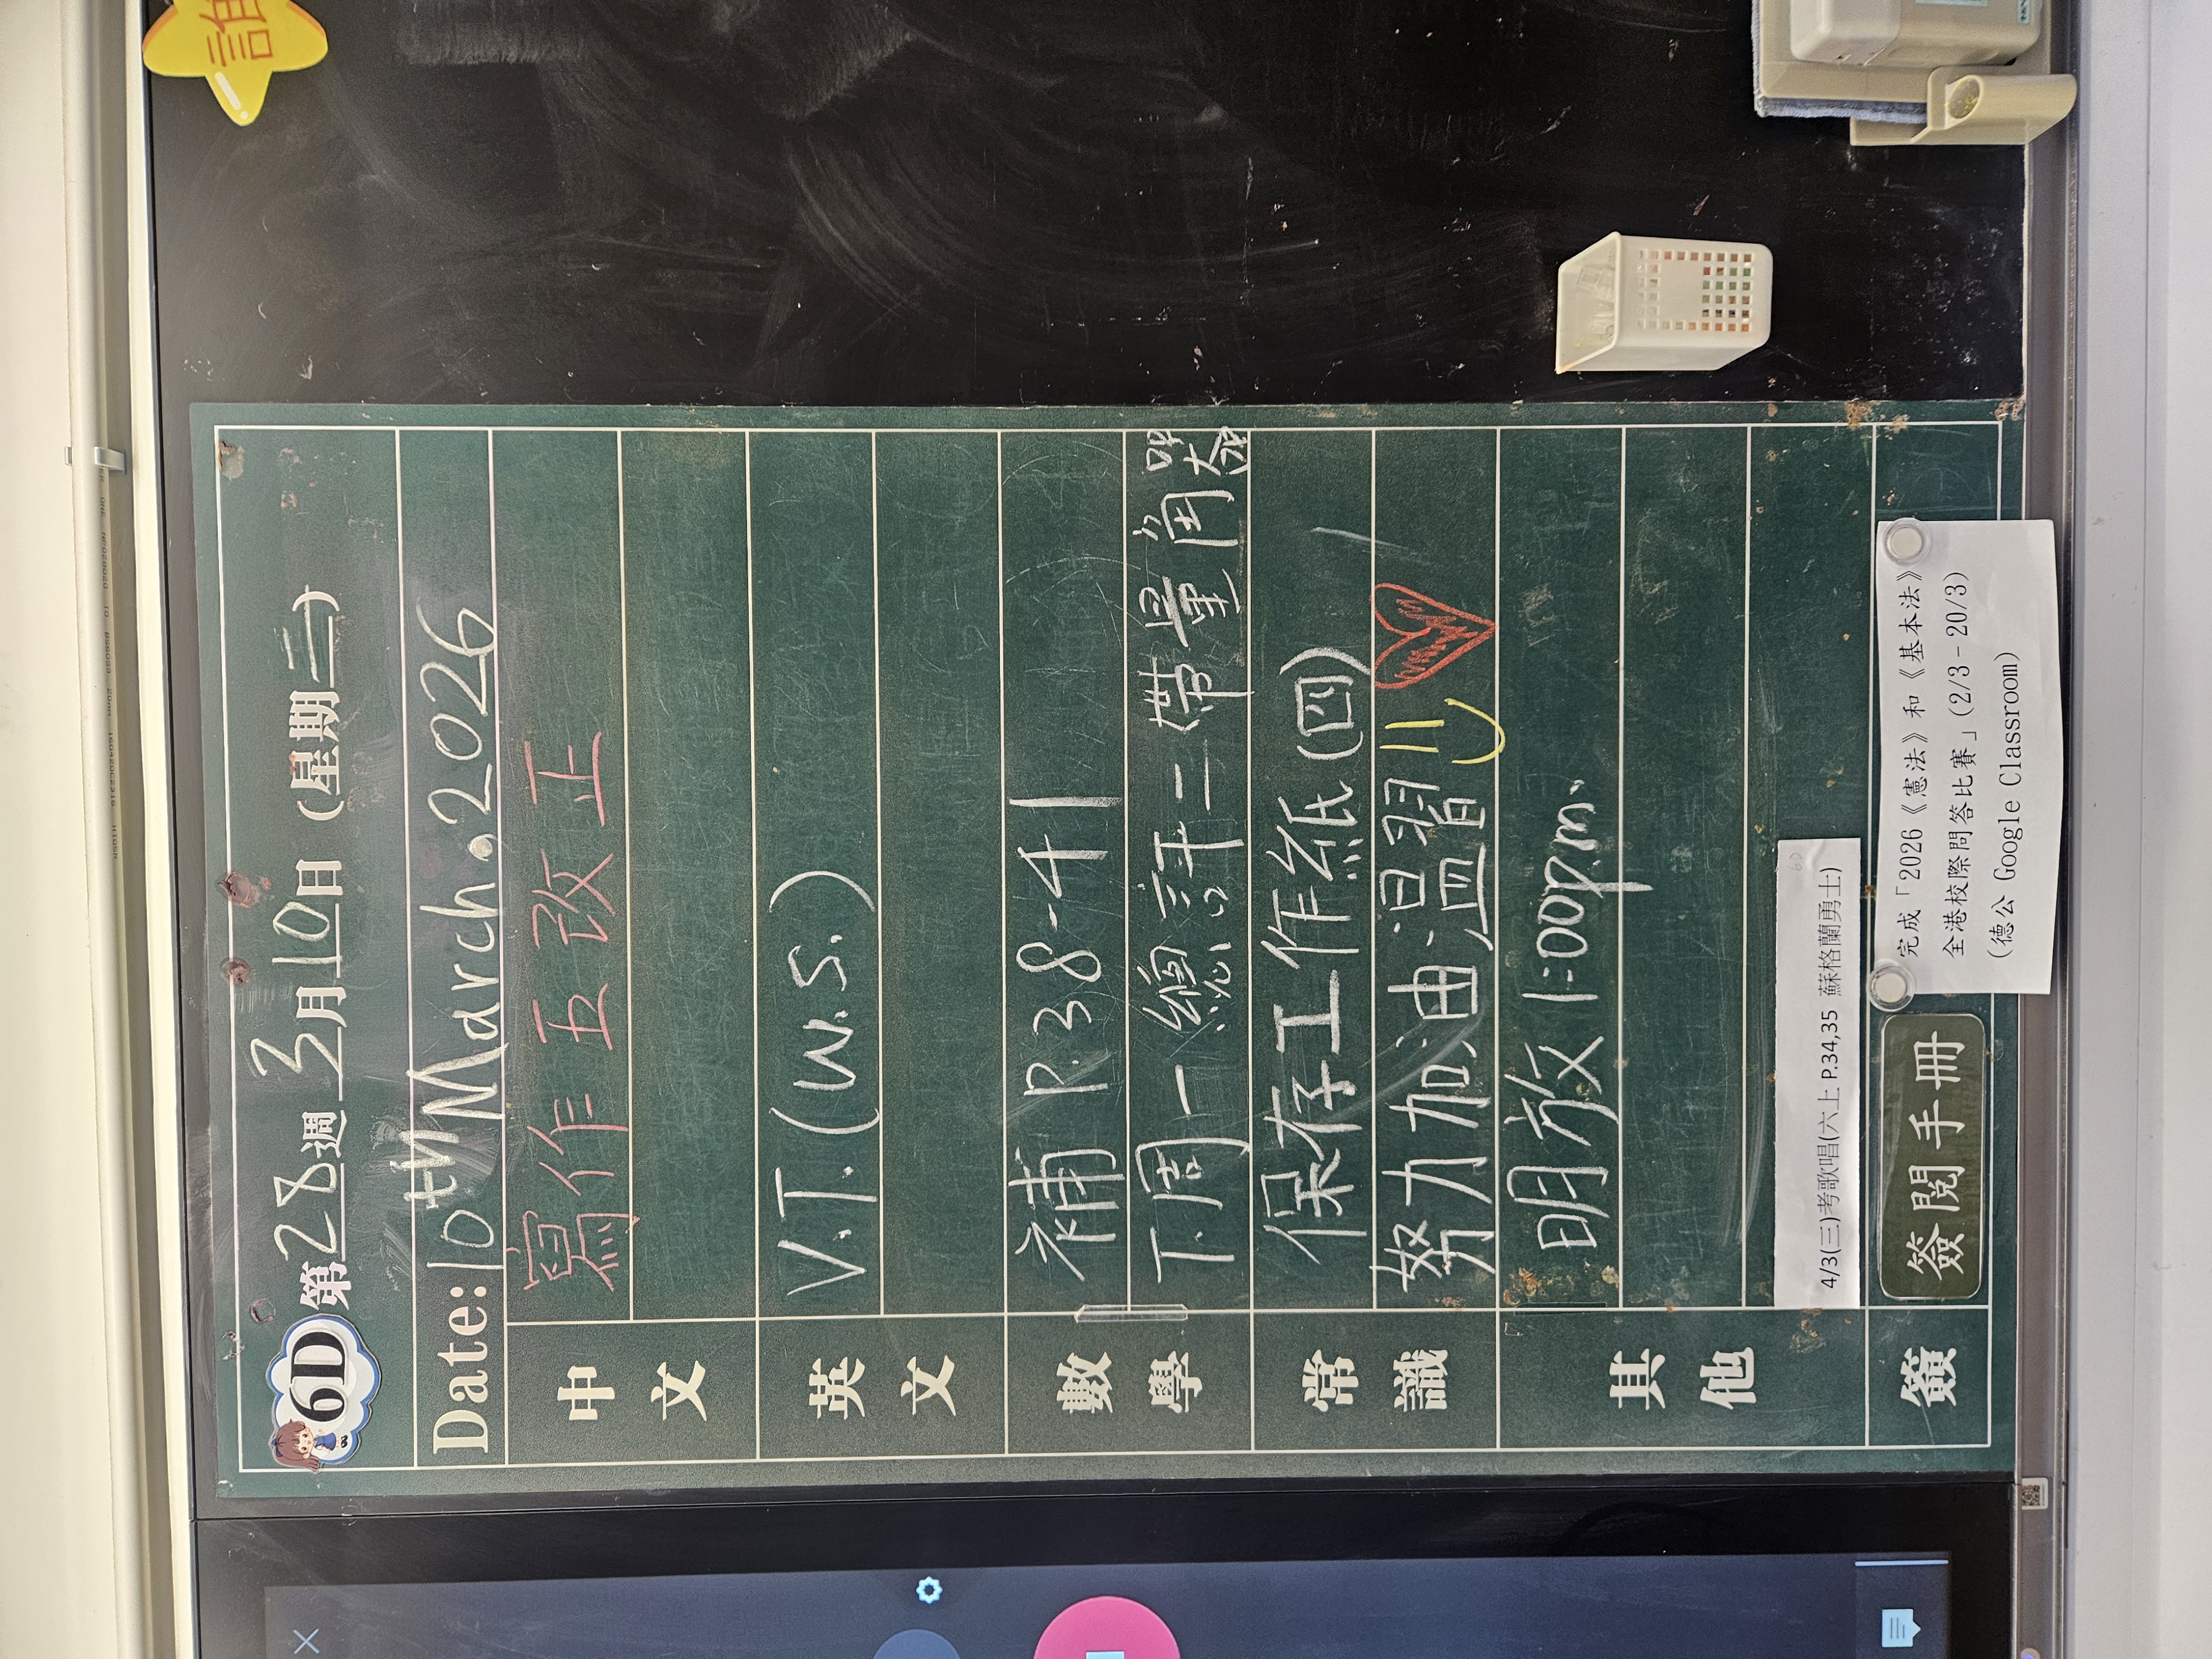 6D 第28週 3月10日 (星期二)
Date: 10th March. 2026
中文 寫作五改正
英文 V.T. (W.S.)
數學 補 P.38-41
下周一總評二帶量角器
常識 保存工作紙(四)
努力加油溫習
其他 明放 1:00p.m.
4/3(三)考歌唱(六上 P.34,35 蘇格蘭勇士)
簽 簽閱手冊
完成「2026《憲法》和《基本法》
全港校際問答比賽」(2/3－20/3)
(德公 Google Classroom)